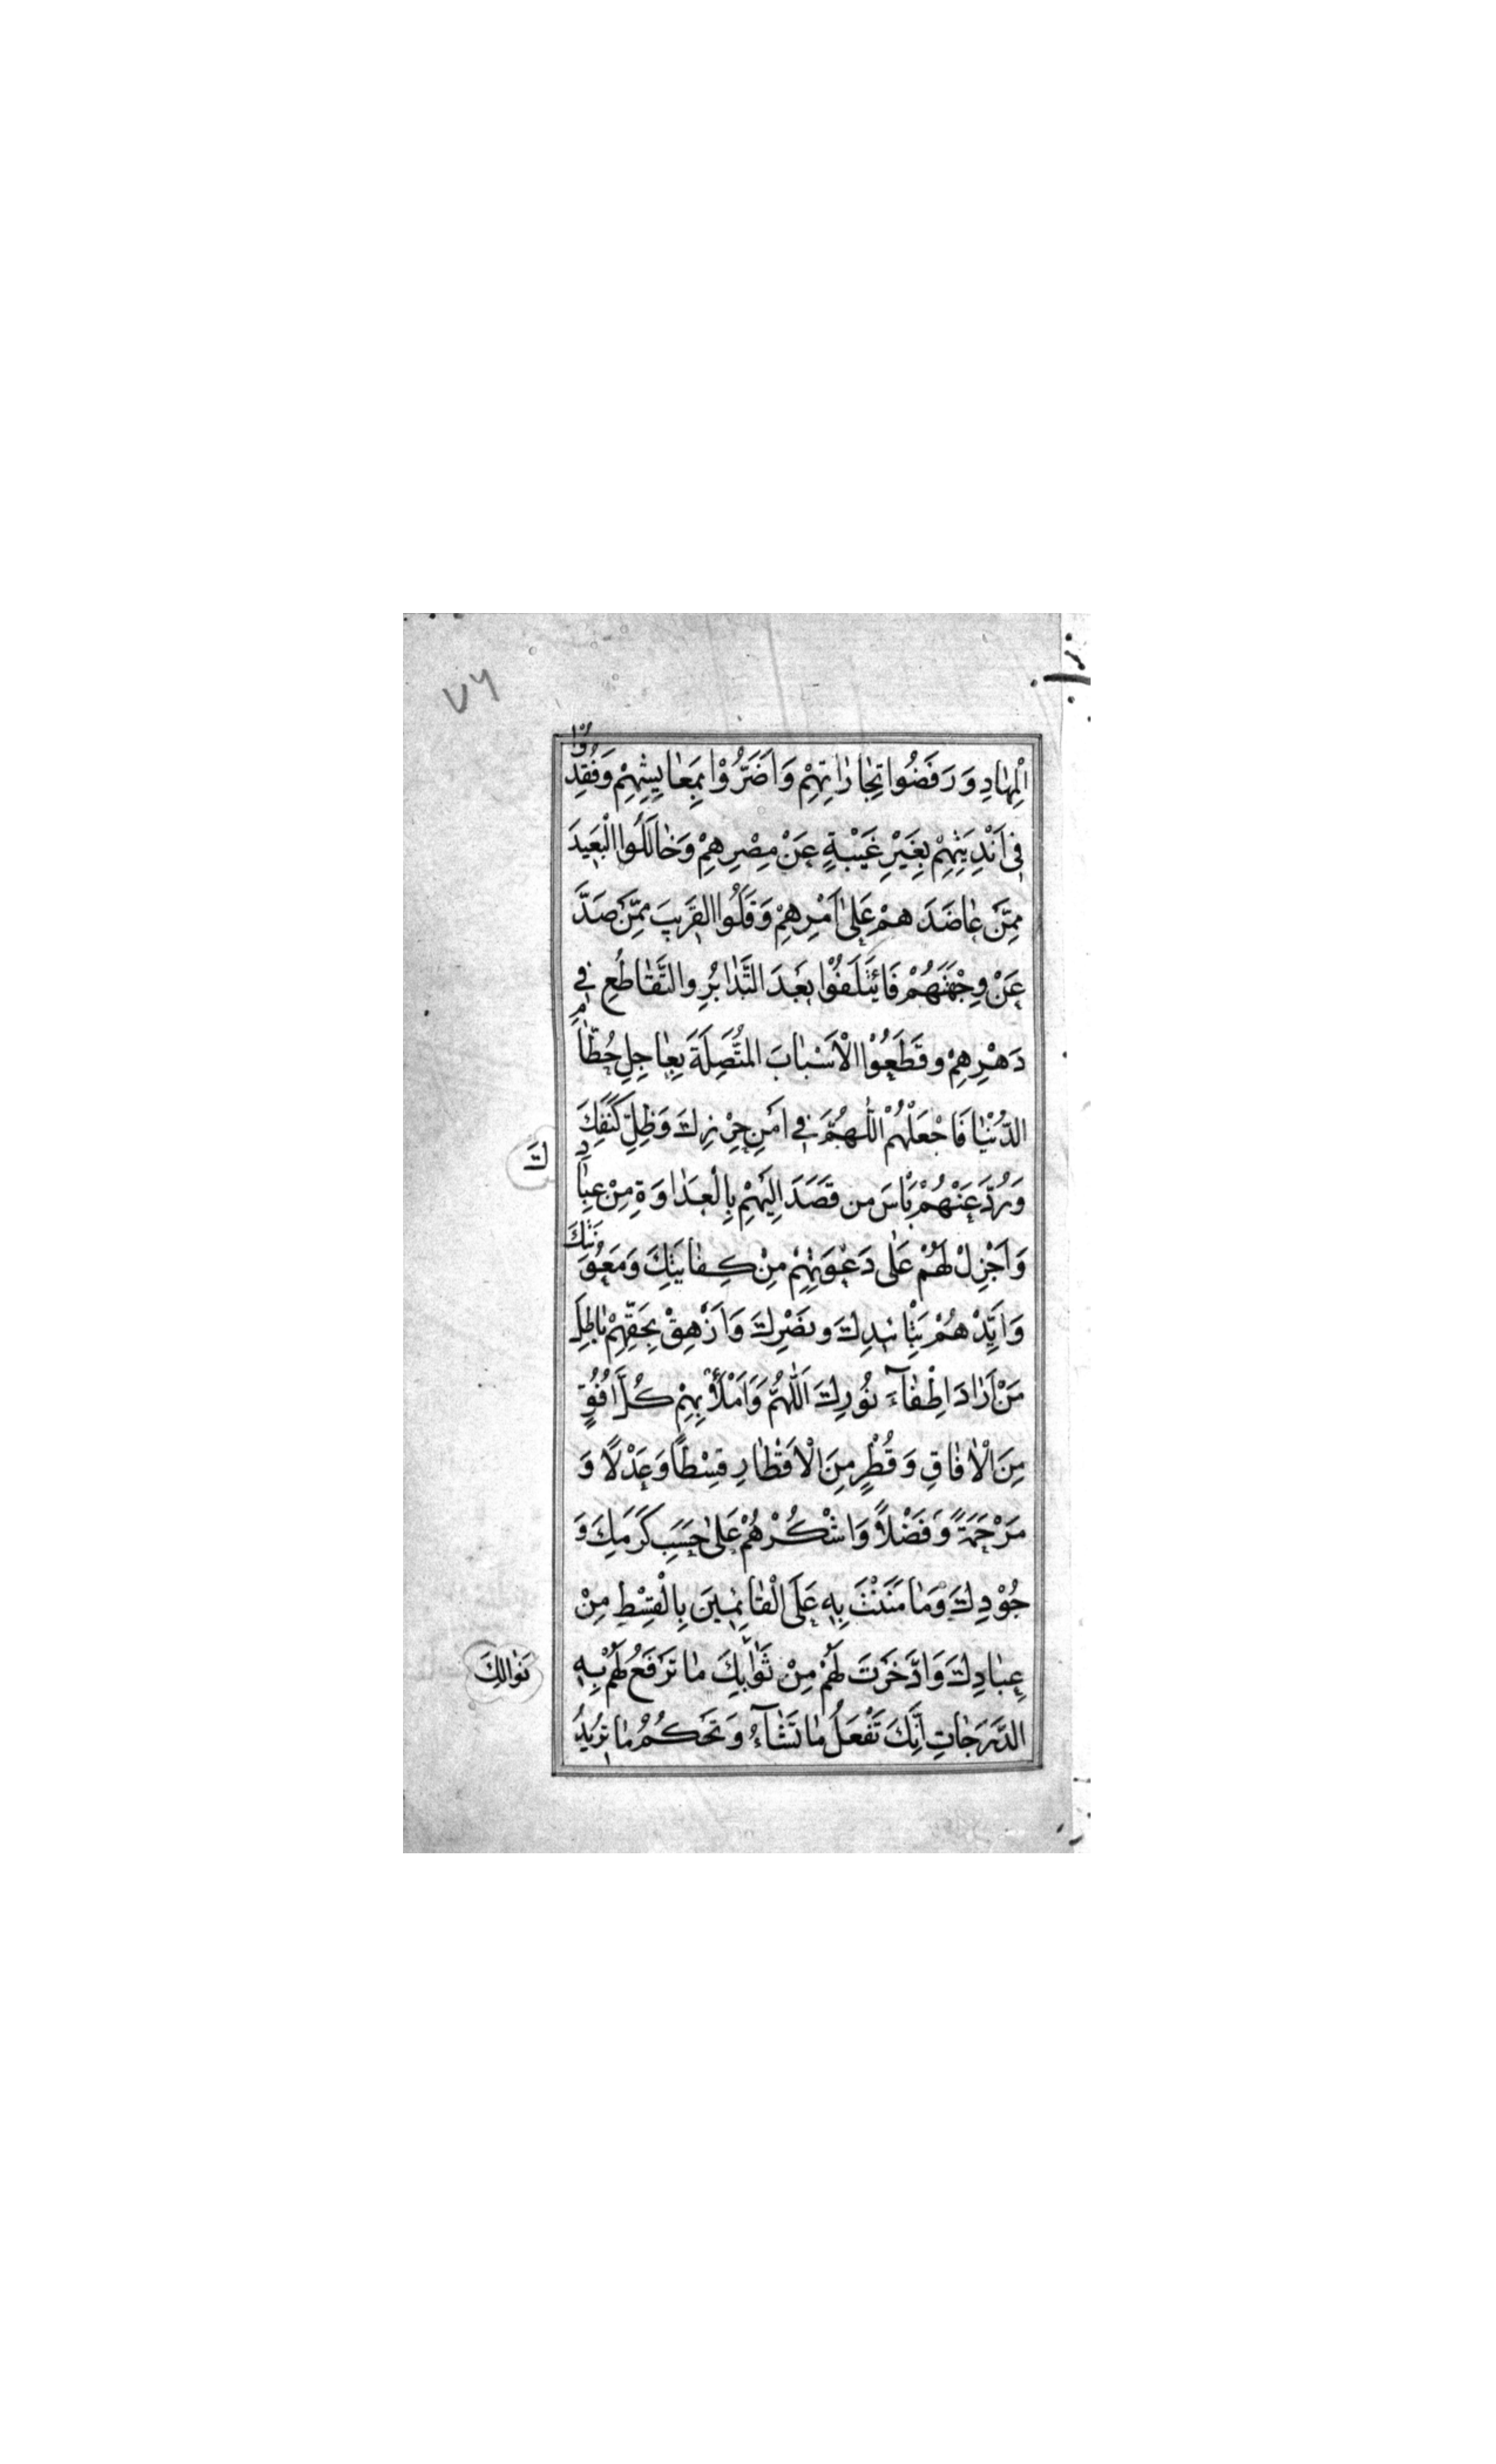 ۷۶
الْمِهٰادِ وَ رَفَضُوا تِجٰارٰاتِهِمْ وَ اَضَرُّوْا بِمَعٰايِشِهِمْ وَ فُقِدُوْا
فِي اَنْدِيَتِهِمْ بِغَيْرِ غَيْبَةٍ عَنْ مِصْرِهِمْ وَ خٰالَلُوا الْبَعِيدَ
مِمَّنْ عٰاضَدَهُمْ عَلىٰ اَمْرِهِمْ وَ قَلُوا القَرِيبَ مِمَّنْ صَدَّ
عَنْ وِجْهَتِهِمْ فَائْتَلَفُوْا بَعْدَ التَّدٰابُرِ والتَّقٰاطُعِ فِي
دَهْرِهِمْ و قَطَعُوْا الْاَسْبٰابَ المُتَّصِلَةَ بِعٰاجِلِ حُطٰامِ
الدُّنْيٰا فَاجْعَلْهُمْ اللّٰهُمَّ فِي اَمْنِ حِرْزِكَ وَ ظِلِّ كَنَفِكَ
وَ رُدَّ عَنْهُمْ بَأْسَ من قَصَدَ اِلَيْهِمْ بِالْعَدٰاوَةِ مِنْ عِبٰادِ
كَ
وَ اَجْزِلْ لَهُمْ عَلٰى دَعْوَتِهِمْ مِنْ كِفٰايَتِكَ وَ مَعُوْنَتِكَ
وَ اَيِّدْهُمْ بِتَأْيٖيدِكَ و نَصْرِكَ وَ اَزْهِقْ بِحَقِّهِمْ بٰاطِلَ
مَنْ اَرٰادَ اِطْفٰآءَ نُورِكَ اَللّٰهُمَّ وَ اَمْلَأْ بِهِمْ كُلَّ اُفُقٍ
مِنَ الْاٰفٰاقِ وَ قُطْرٍ مِنَ الْاَقْطٰارِ قِسْطًا وَ عَدْلًا وَ
مَرْحَمَةً وَ فَضْلًا وَ اشْكُرْهُمْ عَلىٰ حَسَبِ كَرَمِكَ وَ
جُوْدِكَ وَ مٰا مَنَنْتَ بِهِ عَلَى الْقٰائِمٖينَ بِالْقِسْطِ مِنْ
عِبٰادِكَ وَ ادَّخَرْتَ لَهُمْ مِنْ ثَوٰابِكَ مٰا تَرْفَعُ لَهُمْ بِهِ
نَوٰالِكَ
الدَّرَجٰاتِ اِنَّكَ تَفْعَلُ مٰا تَشٰآءُ وَ تَحْكُمُ مٰا تُرٖيدُ